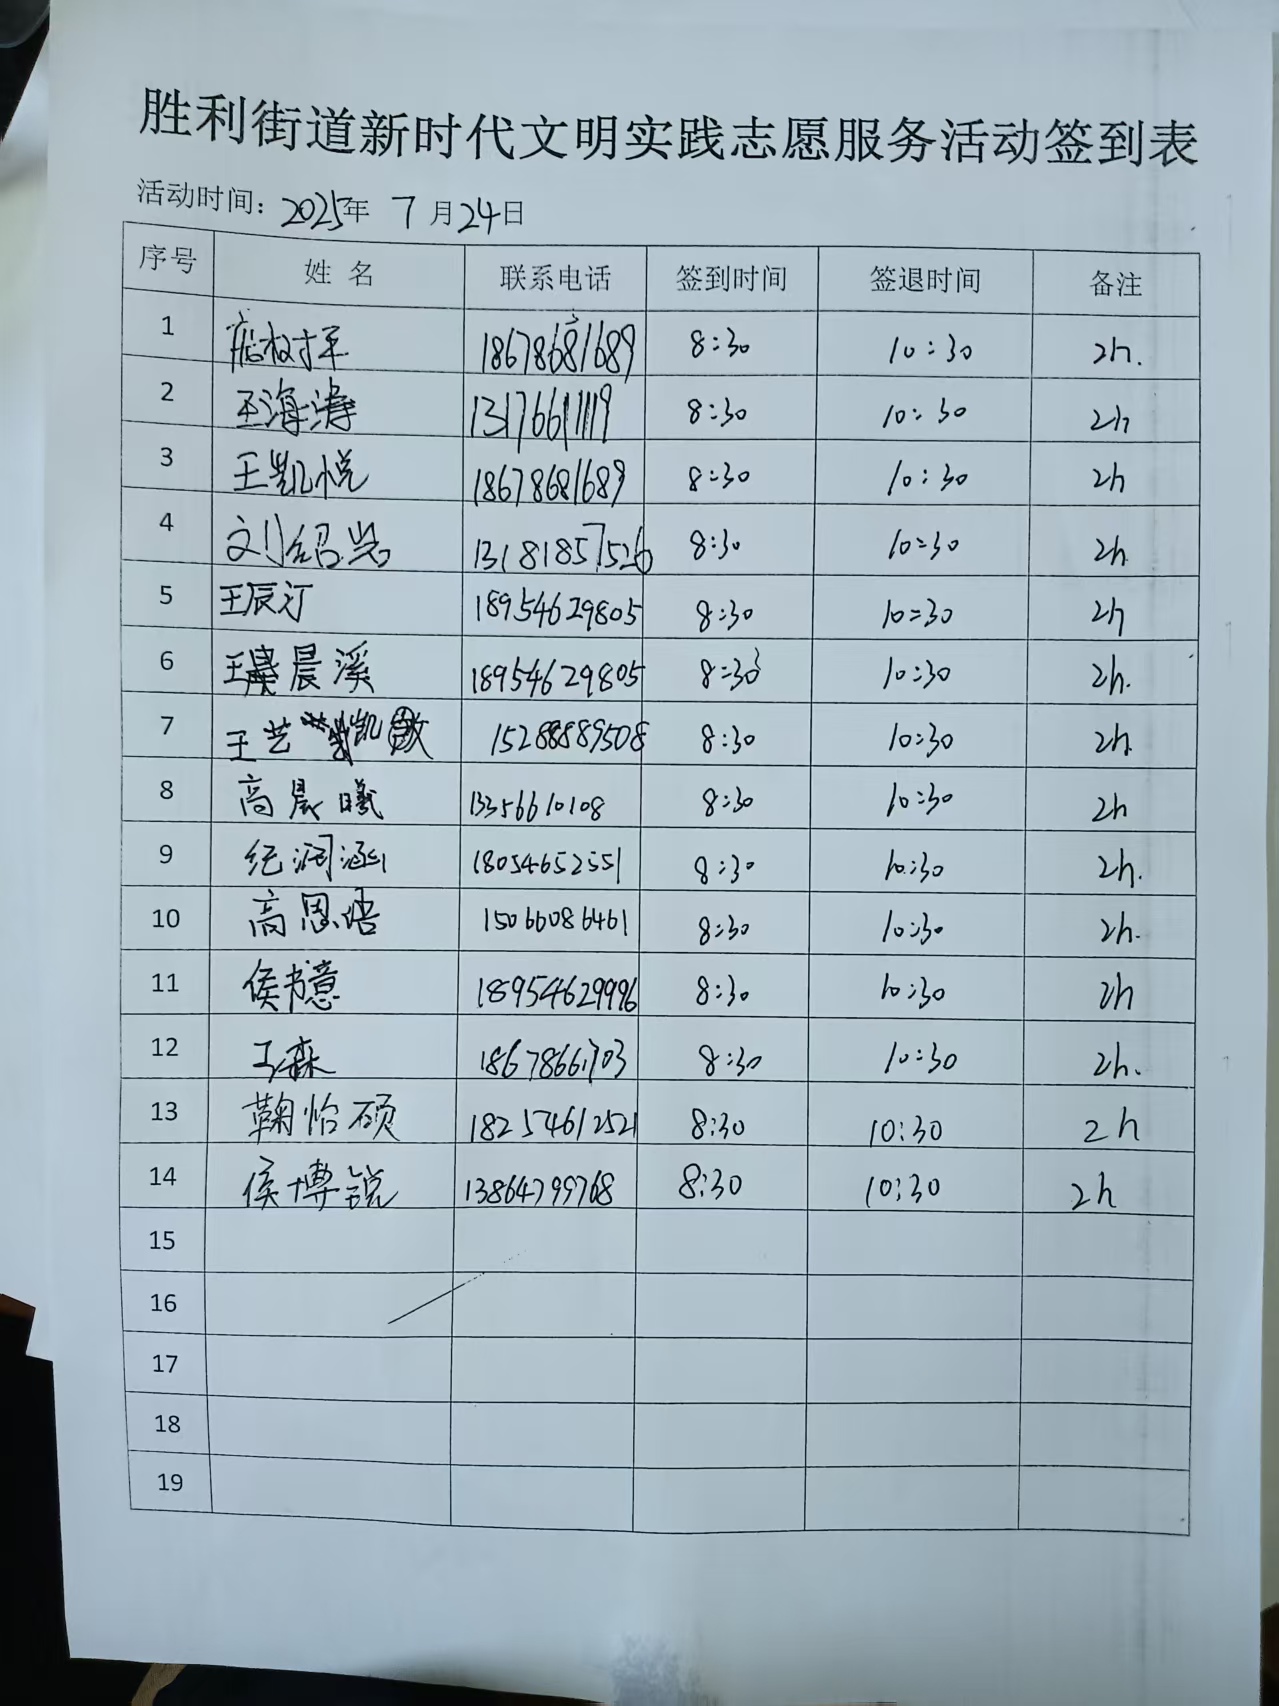 胜利街道新时代文明实践志愿服务活动签到表
活动时间：2025年 7 月 24日
序号 姓 名 联系电话 签到时间 签退时间 备注
1 18678681689 8:30 10:30 2h.
2 王海涛 13176611119 8:30 10:30 2h
3 王凯悦 18678681689 8:30 10:30 2h
4 刘绍 13181857526 8:30 10:30 2h
5 王辰汀 18954629805 8:30 10:30 2h
6 王晨溪 18954629805 8:30 10:30 2h.
7 王艺凯 15288889508 8:30 10:30 2h
8 高晨曦 13356610108 8:30 10:30 2h
9 纪润涵 18054652551 8:30 10:30 2h.
10 高恩语 15066086461 8:30 10:30 2h.
11 侯书意 18954629996 8:30 10:30 2h
12 王森 8:30 10:30 2h.
13 鞠怡硕 18254612521 8:30 10:30 2h
14 侯博锐 13864799768 8:30 10:30 2h
15
16
17
18
19